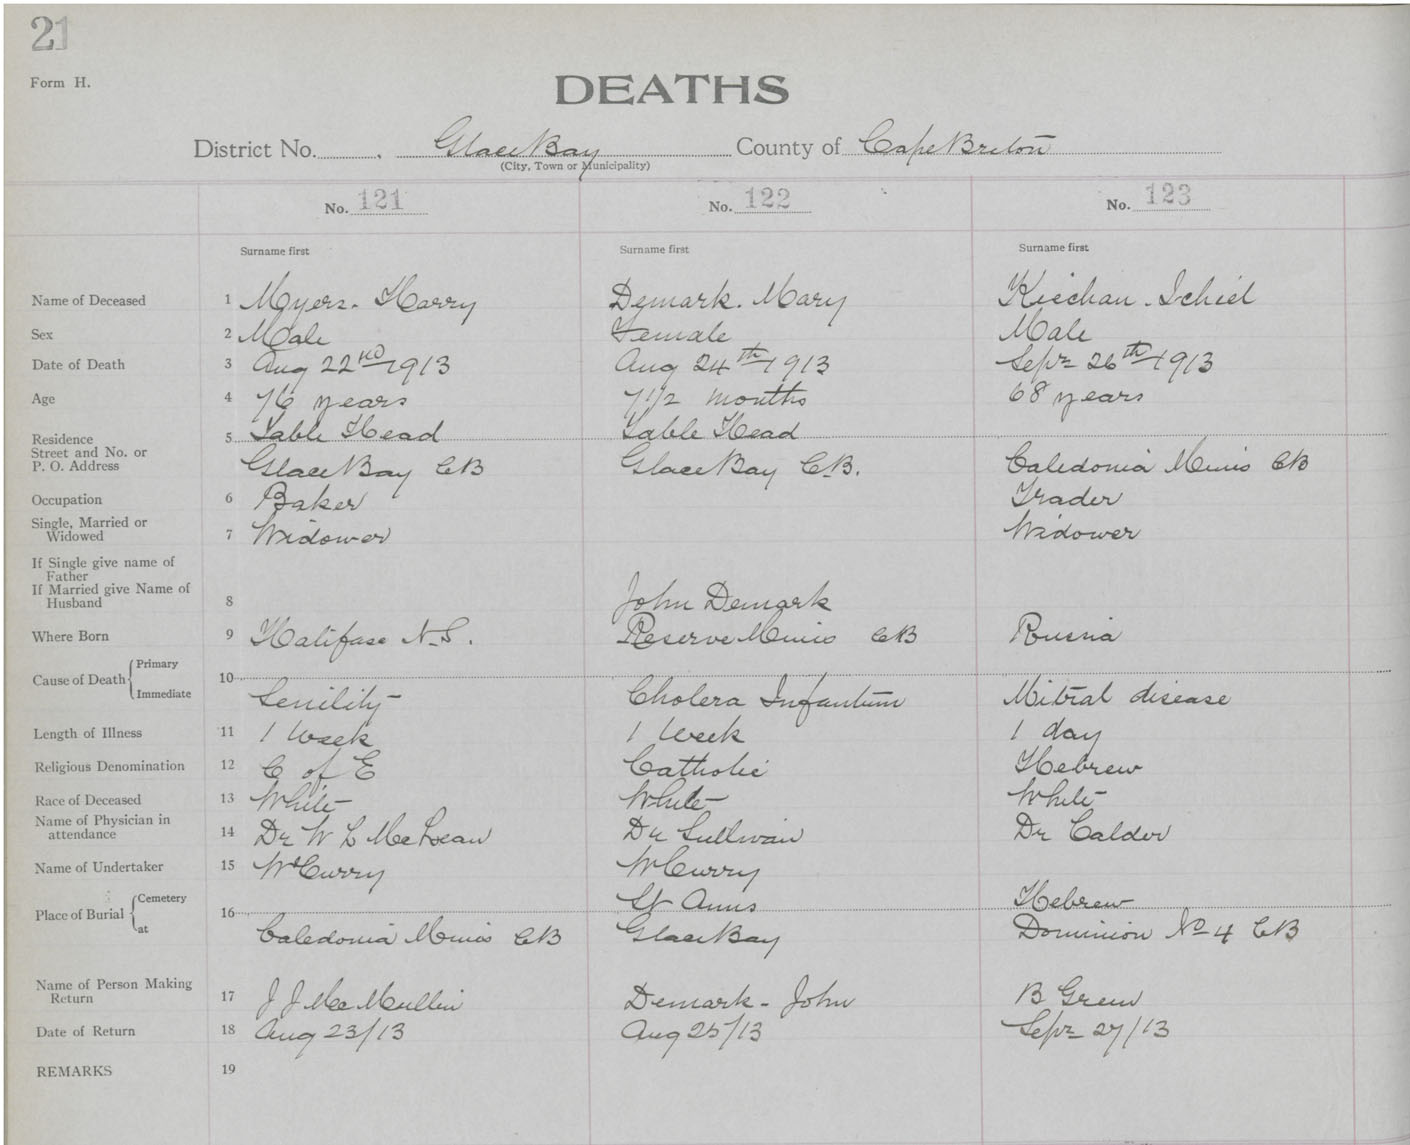 21
Form H.
DEATHS
District No. Glace Bay County of Cape Breton
(City, Town or Municipality)
No. 121 No. 122 No. 123
Surname first Surname first Surname first
Name of Deceased 1 Myers. Harry Demark. Mary Kiechan. Ichiel
Sex 2 Male Female Male
Date of Death 3 Aug 22nd 1913 Aug 24th 1913 Sept 26th 1913
Age 4 76 years 7 1/2 months 68 years
Residence 5 Table Head Table Head
Street and No. or
P. O. Address Glace Bay CB Glace Bay C.B. Caledonia Mines CB
Occupation 6 Baker Trader
Single, Married or
Widowed 7 Widower Widower
If Single give name of
Father
If Married give Name of
Husband 8 John Demark
Where Born 9 Halifax N.S. Reserve Mines CB Russia
Primary
Cause of Death 10
Immediate Senility Cholera Infantum Mitral disease
Length of Illness 11 1 Week 1 Week 1 day
Religious Denomination 12 C of E Catholic Hebrew
Race of Deceased 13 White White White
Name of Physician in
attendance 14 Dr W L McLean Dr Sullivan Dr Calder
Name of Undertaker 15 McCurry McCurry
Cemetery St Anns Hebrew
Place of Burial 16
at Caledonia Mines CB Glace Bay Dominion No 4 CB
Name of Person Making
Return 17 J J MacMullin Demark - John B Green
Date of Return 18 Aug 23/13 Aug 25/13 Sept 27/13
REMARKS 19